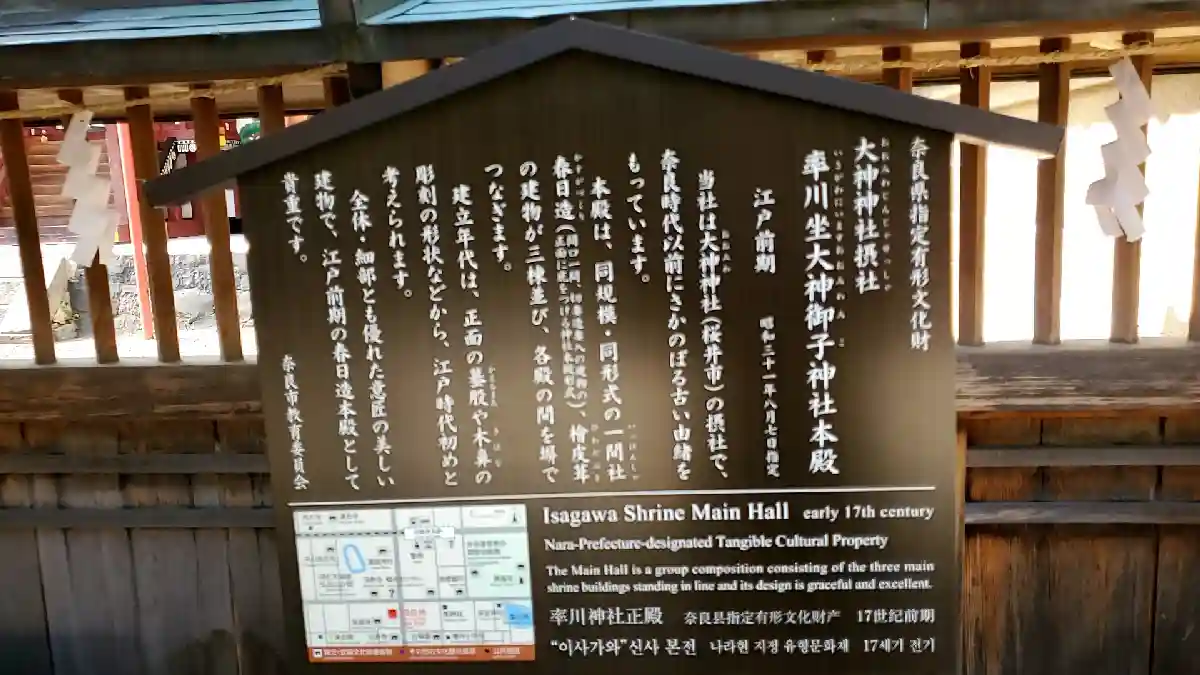 奈良県指定有形文化財
大神神社摂社
率川坐大神御子神社本殿
江戸前期 昭和三十一年八月七日指定
当社は大神神社(桜井市)の摂社で、
奈良時代以前にさかのぼる古い由緒を
もっています。
本殿は、同規模・同形式の一間社
春日造(間口一間、切妻造妻入の建物の正面に庇をつける神社本殿形式)、檜皮葺
の建物が三棟並び、各殿の間を塀で
つなぎます。
建立年代は、正面の蟇股や木鼻の
彫刻の形状などから、江戸時代初めと
考えられます。
全体・細部とも優れた意匠の美しい
建物で、江戸前期の春日造本殿として
貴重です。
奈良市教育委員会
Isagawa Shrine Main Hall early 17th century
Nara-Prefecture-designated Tangible Cultural Property
The Main Hall is a group composition consisting of the three main
shrine buildings standing in line and its design is graceful and excellent.
率川神社正殿 奈良县指定有形文化财产 17世纪前期
"이사가와"신사 본전 나라현 지정 유형문화재 17세기 전기